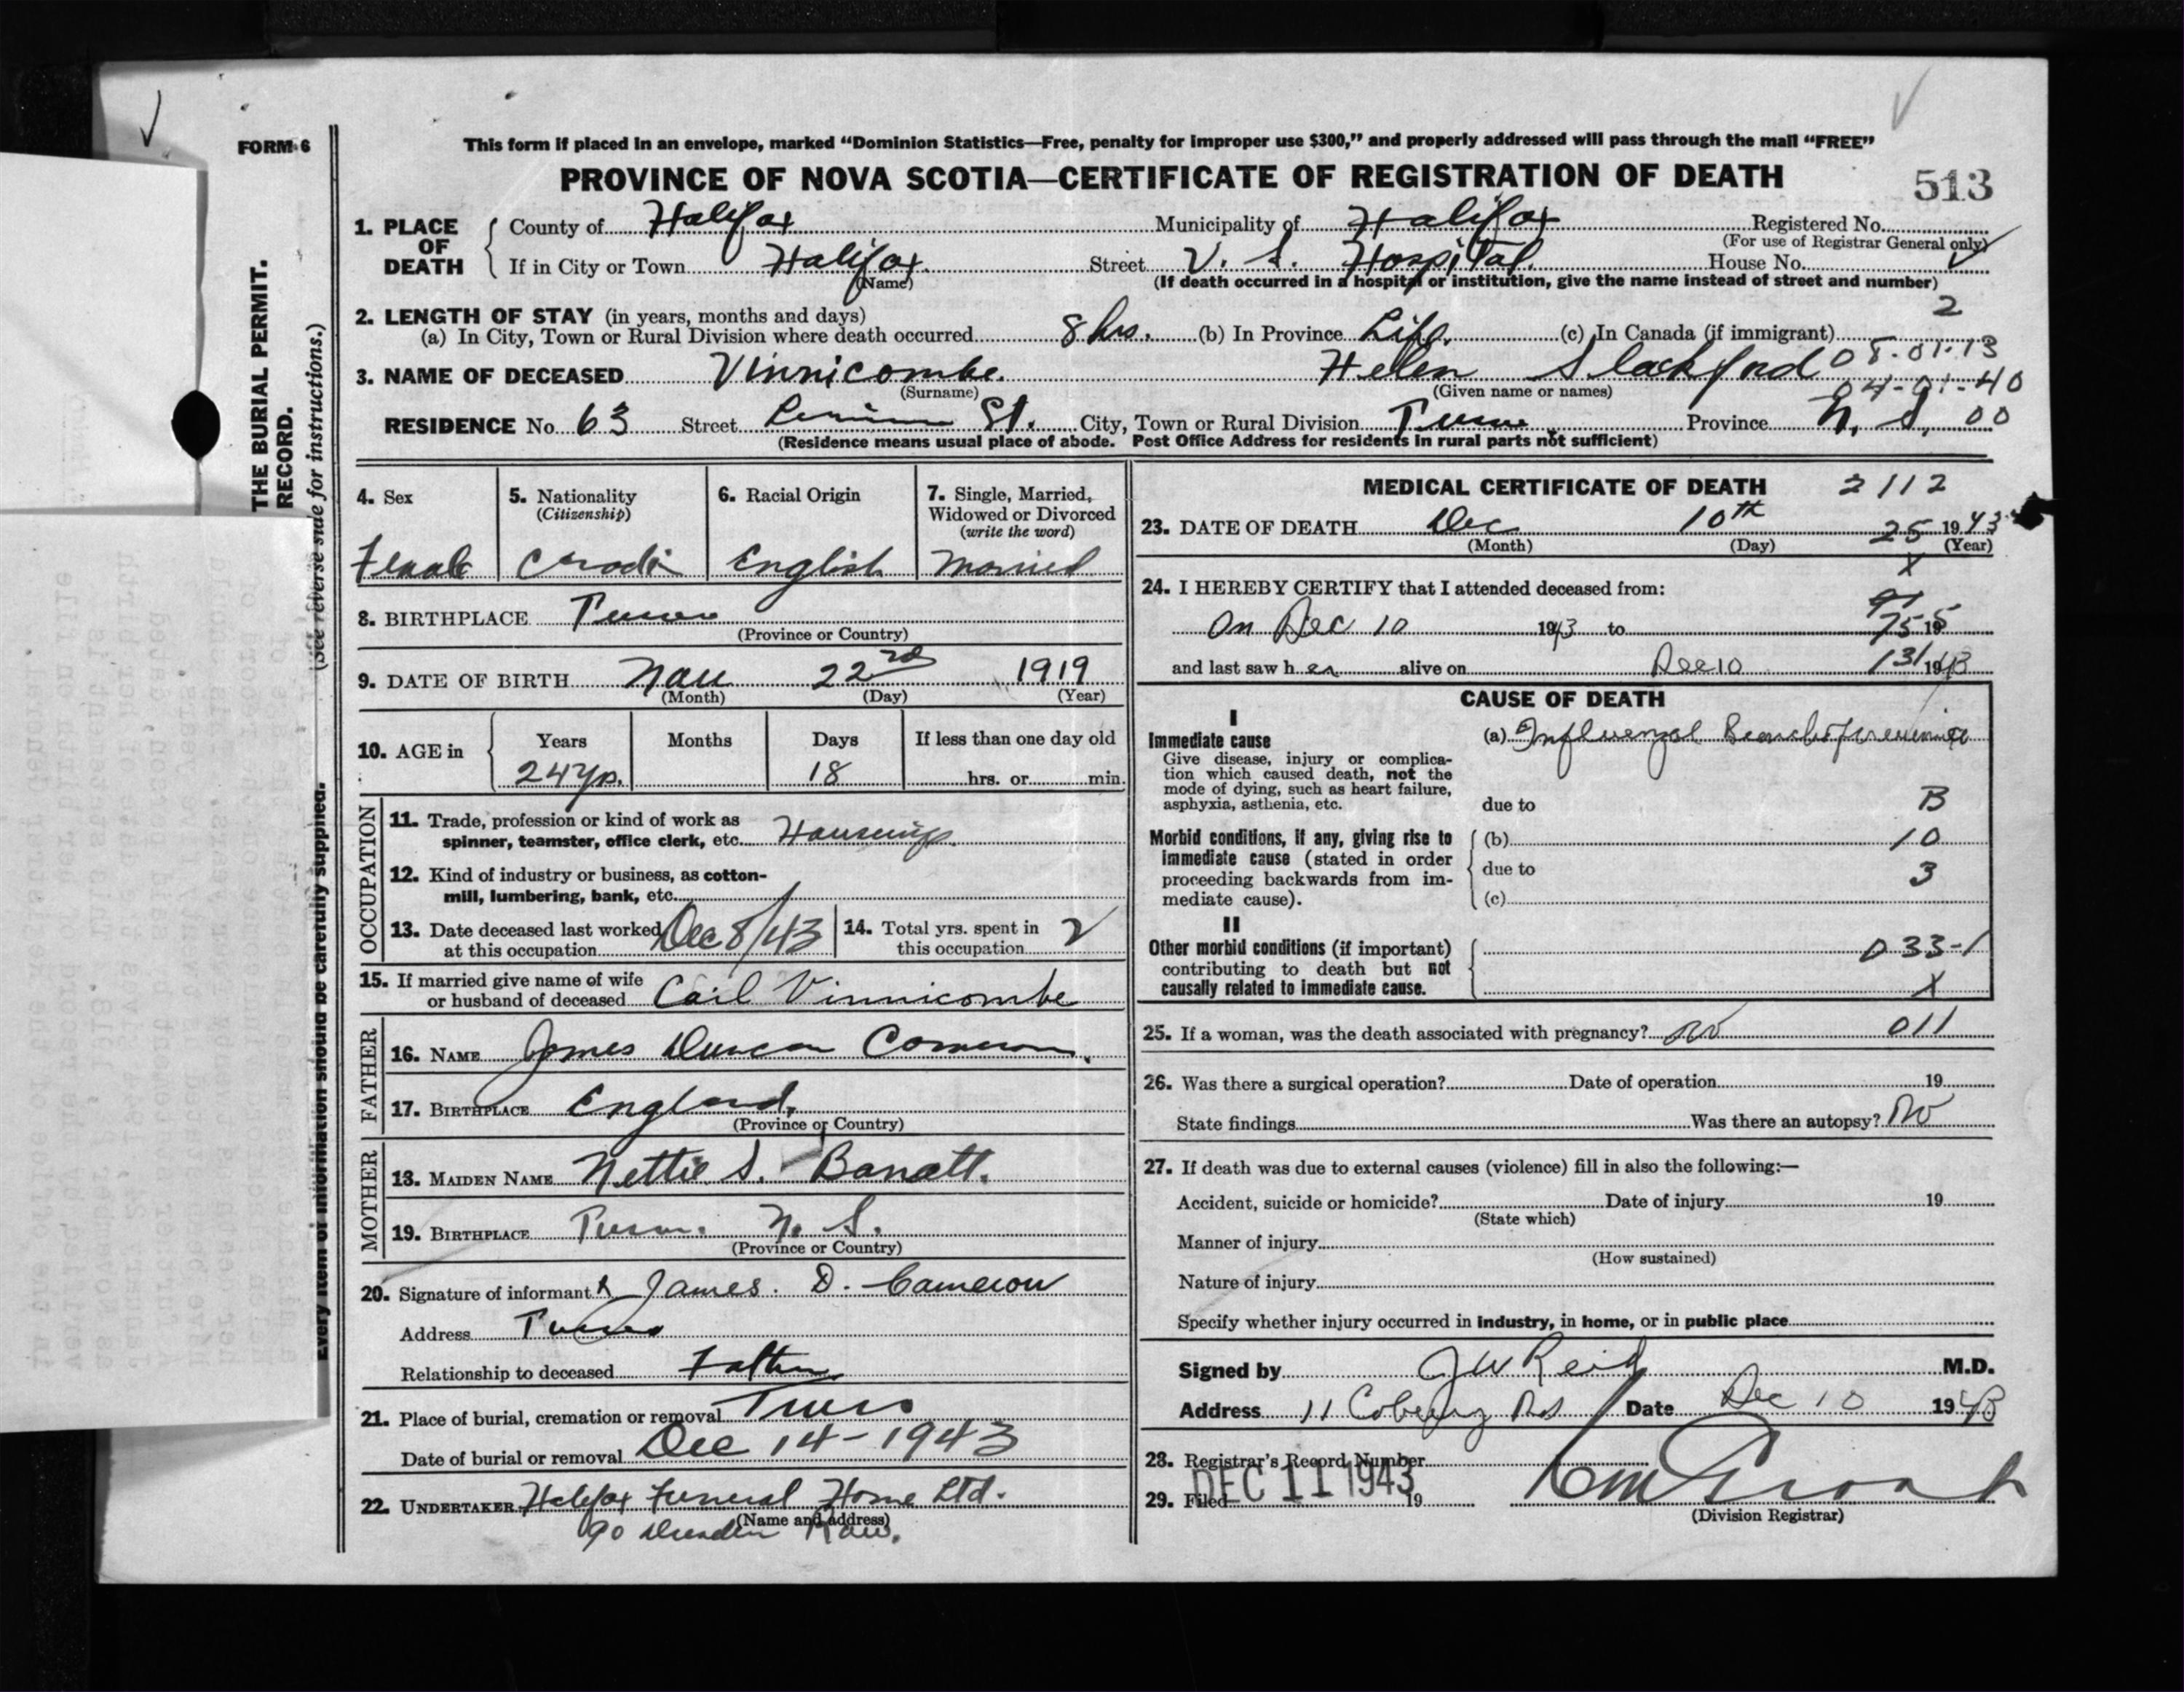 FORM 6
This form if placed in an envelope, marked “Dominion Statistics—Free, penalty for improper use $300,” and properly addressed will pass through the mail “FREE”
PROVINCE OF NOVA SCOTIA—CERTIFICATE OF REGISTRATION OF DEATH
513
1. PLACE OF DEATH
County of Halifax Municipality of Halifax Registered No.
(For use of Registrar General only)
If in City or Town Halifax. Street V. S. Hospital. House No.
(Name) (If death occurred in a hospital or institution, give the name instead of street and number)
2
2. LENGTH OF STAY (in years, months and days)
(a) In City, Town or Rural Division where death occurred 8 hrs. (b) In Province Life. (c) In Canada (if immigrant)
08-01-13
3. NAME OF DECEASED Vinnicombe. Helen Slackford
(Surname) (Given name or names)
04-01-40
RESIDENCE No. 63 Street St. City, Town or Rural Division Truro Province N. S. 00
(Residence means usual place of abode. Post Office Address for residents in rural parts not sufficient)
THE BURIAL PERMIT.
RECORD.
(See reverse side for instructions.)
Every item of information should be carefully supplied.
4. Sex
Female
5. Nationality
(Citizenship)
6. Racial Origin
English
7. Single, Married,
Widowed or Divorced
(write the word)
Married
8. BIRTHPLACE Truro
(Province or Country)
9. DATE OF BIRTH Nov 22nd 1919
(Month) (Day) (Year)
10. AGE in
Years Months Days If less than one day old
24 yrs. 18 hrs. or min.
OCCUPATION
11. Trade, profession or kind of work as
spinner, teamster, office clerk, etc. Housewife.
12. Kind of industry or business, as cotton-
mill, lumbering, bank, etc.
13. Date deceased last worked
at this occupation Dec 8/43
14. Total yrs. spent in
this occupation 2
15. If married give name of wife
or husband of deceased Carl Vinnicombe
FATHER
16. NAME James Duncan Cameron.
17. BIRTHPLACE England.
(Province or Country)
MOTHER
18. MAIDEN NAME Nettie S. Barratt.
19. BIRTHPLACE Truro. N. S.
(Province or Country)
20. Signature of informant X James. D. Cameron
Address Truro
Relationship to deceased Father.
21. Place of burial, cremation or removal Truro
Date of burial or removal Dec 14-1943
22. UNDERTAKER Halifax Funeral Home Ltd.
(Name and address)
90 Row.
MEDICAL CERTIFICATE OF DEATH 2112
23. DATE OF DEATH Dec 10th 25 1943
(Month) (Day) (Year)
X
24. I HEREBY CERTIFY that I attended deceased from:
On Dec 10 1943 to 19
and last saw her alive on Dec 10 131 1943
CAUSE OF DEATH
I
Immediate cause
Give disease, injury or complica-
tion which caused death, not the
mode of dying, such as heart failure,
asphyxia, asthenia, etc.
(a) Influenzal Bronchopneumonia
due to B
Morbid conditions, if any, giving rise to
immediate cause (stated in order
proceeding backwards from im-
mediate cause).
(b) 10
due to 3
(c)
II
Other morbid conditions (if important)
contributing to death but not
causally related to immediate cause.
033-1
X
25. If a woman, was the death associated with pregnancy? No 011
26. Was there a surgical operation? Date of operation 19
State findings Was there an autopsy? No
27. If death was due to external causes (violence) fill in also the following:—
Accident, suicide or homicide? Date of injury 19
(State which)
Manner of injury
(How sustained)
Nature of injury
Specify whether injury occurred in industry, in home, or in public place
Signed by JW Reid M.D.
Address 11 Coburg Rd Date Dec 10 1943
28. Registrar's Record Number
29. Filed DEC 11 1943 19
(Division Registrar)